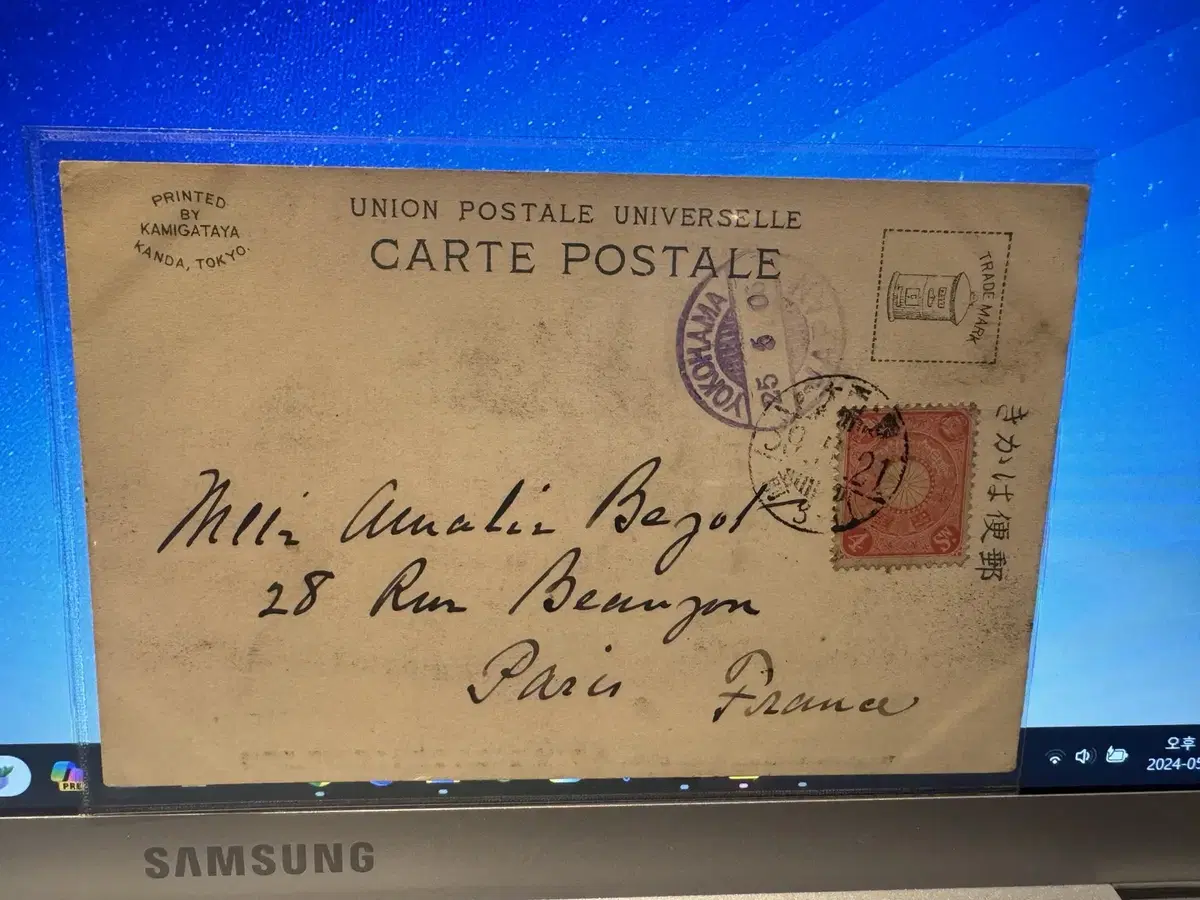 PRINTED
BY
KAMIGATAYA
KANDA, TOKYO.
UNION POSTALE UNIVERSELLE
CARTE POSTALE
TRADE MARK
YOKOHAMA
25 5 0
きかは便郵
21
4 Sn
Mlle Amalie Bezot
28 Rue Beaujon
Paris France
PRE
오후
2024-05
SAMSUNG